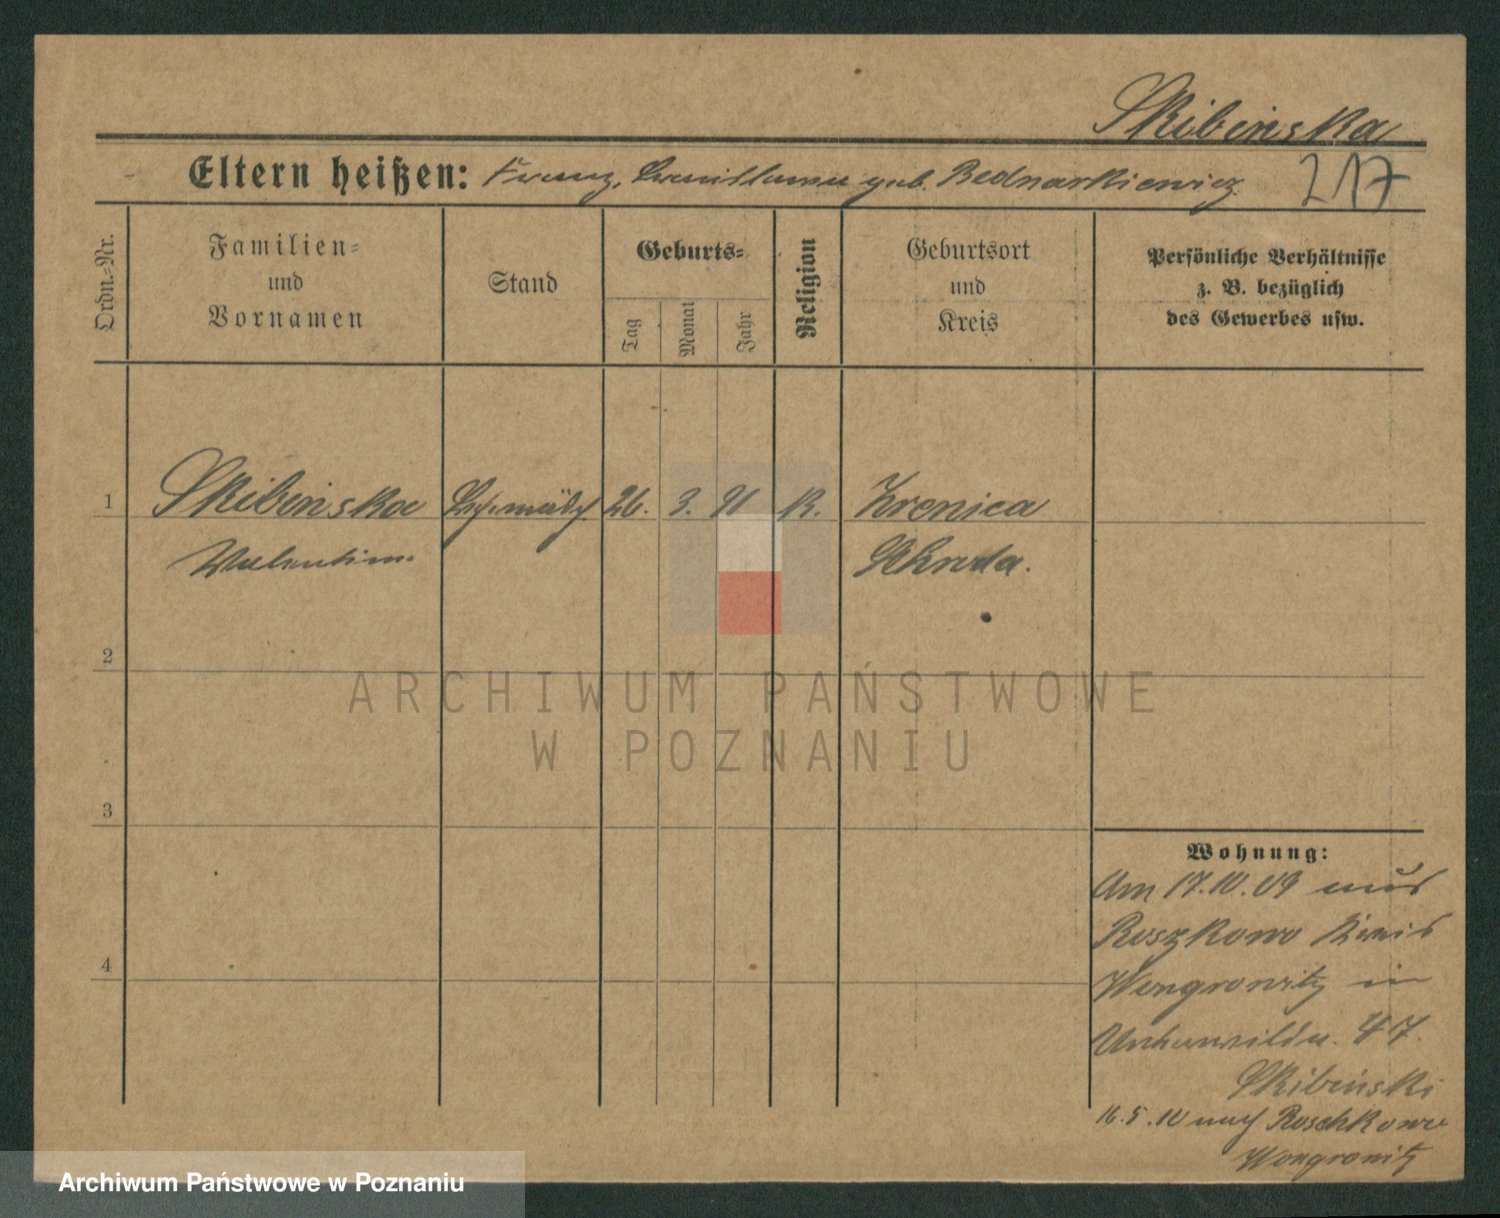 Skibinska
Eltern heißen: Franz, geb. Bednarkiewicz
217
Ordn.-Nr.
Familien-
und
Vornamen
Stand
Geburts-
Tag
Monat
Jahr
Religion
Geburtsort
und
Kreis
Persönliche Verhältnisse
z. B. bezüglich
des Gewerbes usw.
1
Skibinska
26. 3. 91 K.
Krenica
Valentina
Schroda.
2
ARCHIWUM PAŃSTWOWE
W POZNANIU
3
Wohnung:
Am 17.10.09 aus
Roszkowo Kreis
4
Wongrowitz in
Unterwilda. 47.
Skibinski
16.5.10 nach Roschkowo
Wongrowitz
Archiwum Państwowe w Poznaniu